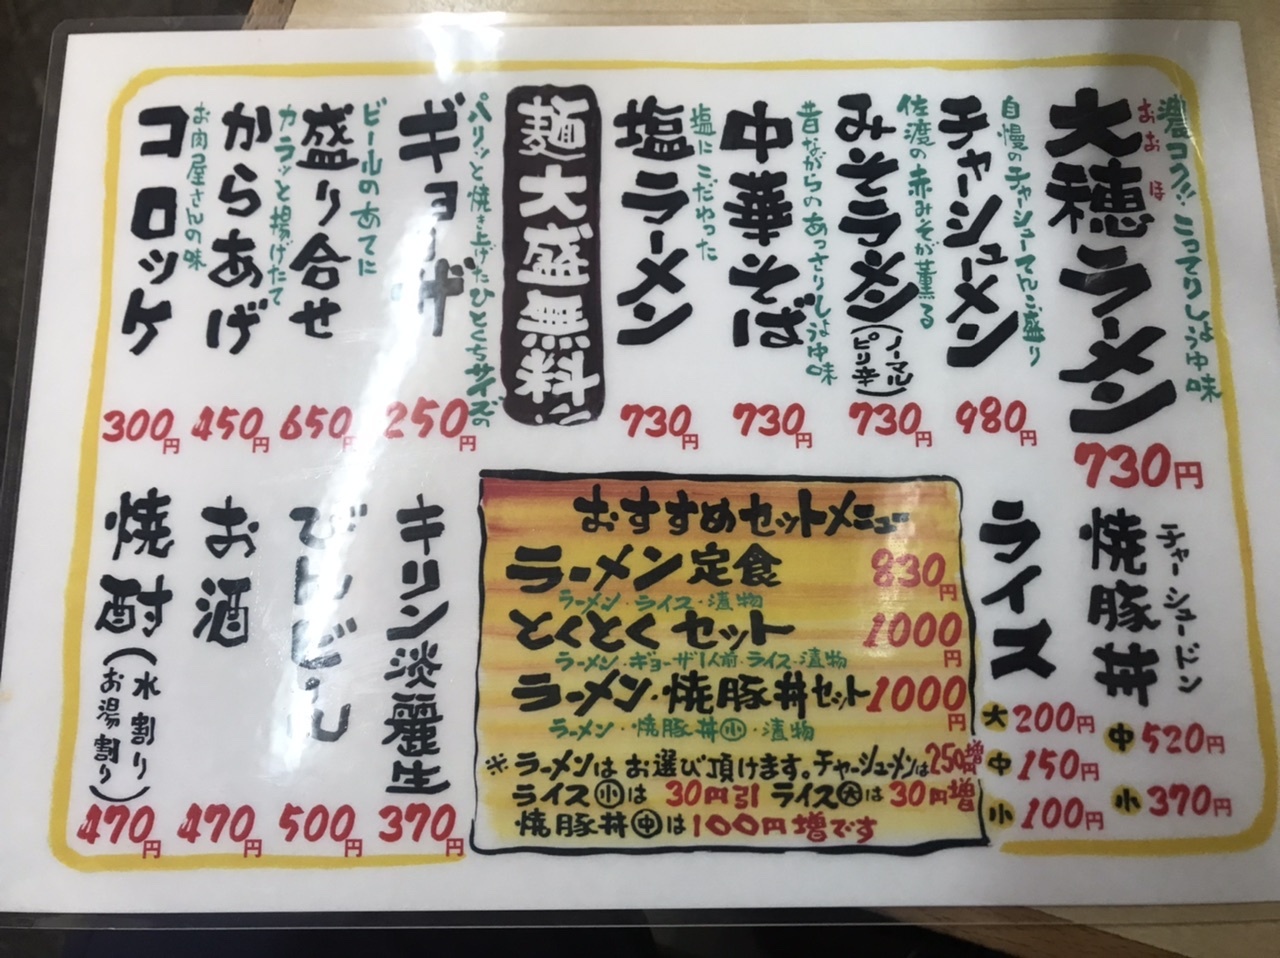 濃コク!! こってりしょうゆ味
おおほ
大穂ラーメン
730円
自慢のチャーシューてんこ盛り
チャーシューメン
980円
佐渡の赤みそが薫る
みそラーメン
(ノーマル
ピリ辛)
730円
昔ながらのあっさりしょうゆ味
中華そば
730円
塩にこだわった
塩ラーメン
730円
麺大盛無料
パリッと焼き上げたひとくちサイズの
ギョーザ
250円
ビールのあてに
盛り合せ
650円
カラッと揚げたて
からあげ
450円
お肉屋さんの味
コロッケ
300円
チャーシュードン
焼豚丼
中520円
小370円
ライス
大200円
中150円
小100円
おすすめセットメニュー
ラーメン定食 830円
ラーメン・ライス・漬物
とくとくセット 1000円
ラーメン・ギョーザ1人前・ライス・漬物
ラーメン・焼豚丼セット 1000円
ラーメン・焼豚丼小・漬物
※ラーメンはお選び頂けます。チャーシューメンは250円増
ライス小は30円引 ライス大は30円増
焼豚丼中は100円増です
キリン淡麗生
370円
びんビール
500円
お酒
470円
焼酎(水割り
お湯割り)
470円